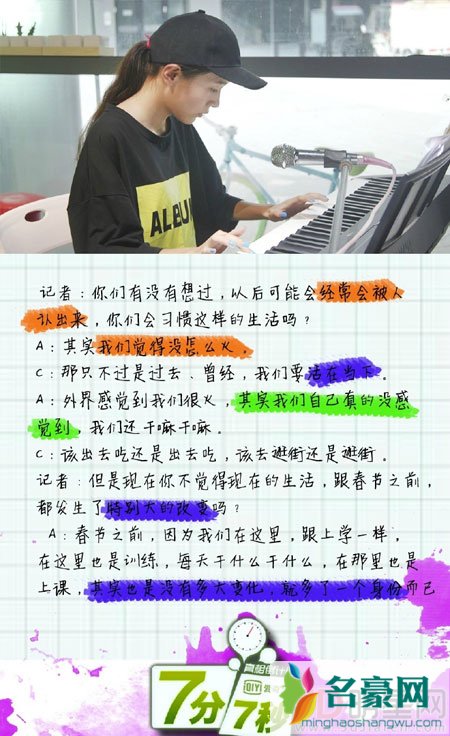 ALBU
记者:你们有没有想过,以后可能会经常会被人
认出来,你们会习惯这样的生活吗?
A:其实我们觉得没怎么火。
C:那只不过是过去、曾经,我们要活在当下。
A:外界感觉到我们很火,其实我们自己真的没感
觉到,我们还干嘛干嘛。
C:该出去吃还是出去吃,该去逛街还是逛街。
记者:但是现在你不觉得现在的生活,跟春节之前,
都发生了特别大的改变吗?
A:春节之前,因为我们在这里,跟上学一样,
在这里也是训练,每天干什么干什么,在那里也是
上课,其实也是没有多大变化,就多了一个身份而已
QIY
7分7秒
名豪网
minghaoshangwu.com